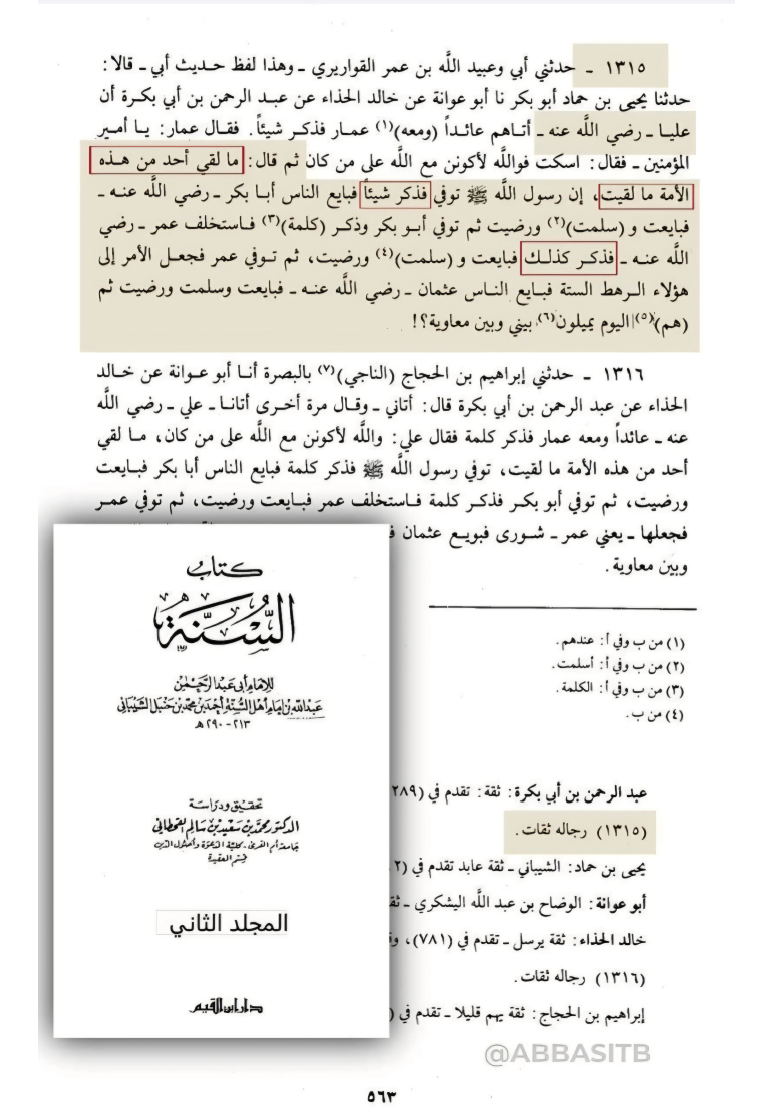 ١٣١٥ ـ حدثني أبي وعبيد اللَّه بن عمر القواريري ـ وهذا لفظ حديث أبي ـ قالا:
حدثنا يحيى بن حماد أبو بكر نا أبو عوانة عن خالد الحذاء عن عبد الرحمن بن أبي بكرة أن
عليا ـ رضي اللَّه عنه ـ أتاهم عائداً (ومعه)(١) عمار فذكر شيئاً. فقال عمار: يا أمير
المؤمنين ـ فقال: اسكت فواللَّه لأكونن مع اللَّه على من كان ثم قال: ما لقي أحد من هذه
الأمة ما لقيت، إن رسول اللَّه ﷺ توفي فذكر شيئاً فبايع الناس أبا بكر ـ رضي اللَّه عنه ـ
فبايعت و (سلمت)(٢) ورضيت ثم توفي أبو بكر وذكر (كلمة)(٣) فاستخلف عمر ـ رضي
اللَّه عنه ـ فذكر كذلك فبايعت و (سلمت)(٤) ورضيت، ثم توفي عمر فجعل الأمر إلى
هؤلاء الرهط الستة فبايع الناس عثمان ـ رضي اللَّه عنه ـ فبايعت وسلمت ورضيت ثم
(هم)(٥) اليوم يميلون(٦) بيني وبين معاوية؟!
١٣١٦ ـ حدثني إبراهيم بن الحجاج (الناجي)(٧) بالبصرة أنا أبو عوانة عن خالد
الحذاء عن عبد الرحمن بن أبي بكرة قال: أتاني ـ وقال مرة أخرى أتانا ـ علي ـ رضي اللَّه
عنه ـ عائداً ومعه عمار فذكر كلمة فقال علي: واللَّه لأكونن مع اللَّه على من كان، ما لقي
أحد من هذه الأمة ما لقيت، توفي رسول اللَّه ﷺ فذكر كلمة فبايع الناس أبا بكر فبايعت
ورضيت، ثم توفي أبو بكر فذكر كلمة فاستخلف عمر فبايعت ورضيت، ثم توفي عمر
فجعلها ـ يعني عمر ـ شورى فبويع عثمان
وبين معاوية.
(١) من ب وفي أ: عندهم.
(٢) من ب وفي أ: أسلمت.
(٣) من ب وفي أ: الكلمة.
(٤) من ب.
عبد الرحمن بن أبي بكرة: ثقة: تقدم في (٢٨٩
(١٣١٥) رجاله ثقات.
يحيى بن حماد: الشيباني ـ ثقة عابد تقدم في (٢
أبو عوانة: الوضاح بن عبد اللَّه اليشكري ـ
خالد الحذاء: ثقة يرسل ـ تقدم في (٧٨١)،
(١٣١٦) رجاله ثقات.
إبراهيم بن الحجاج: ثقة يهم قليلا ـ تقدم في (
كتاب
السُّنَّة
للإمام أبي عبد الرحمن
عبد الله بن إمام أهل السنة أحمد بن محمد بن حنبل الشيباني
٢١٣ - ٢٩٠ هـ
تحقيق ودراسة
الدكتور محمد بن سعيد بن سالم القحطاني
جامعة أم القرى ـ كلية الدعوة وأصول الدين
قسم العقيدة
المجلد الثاني
دار ابن القيم
@ABBASITB
٥٦٣